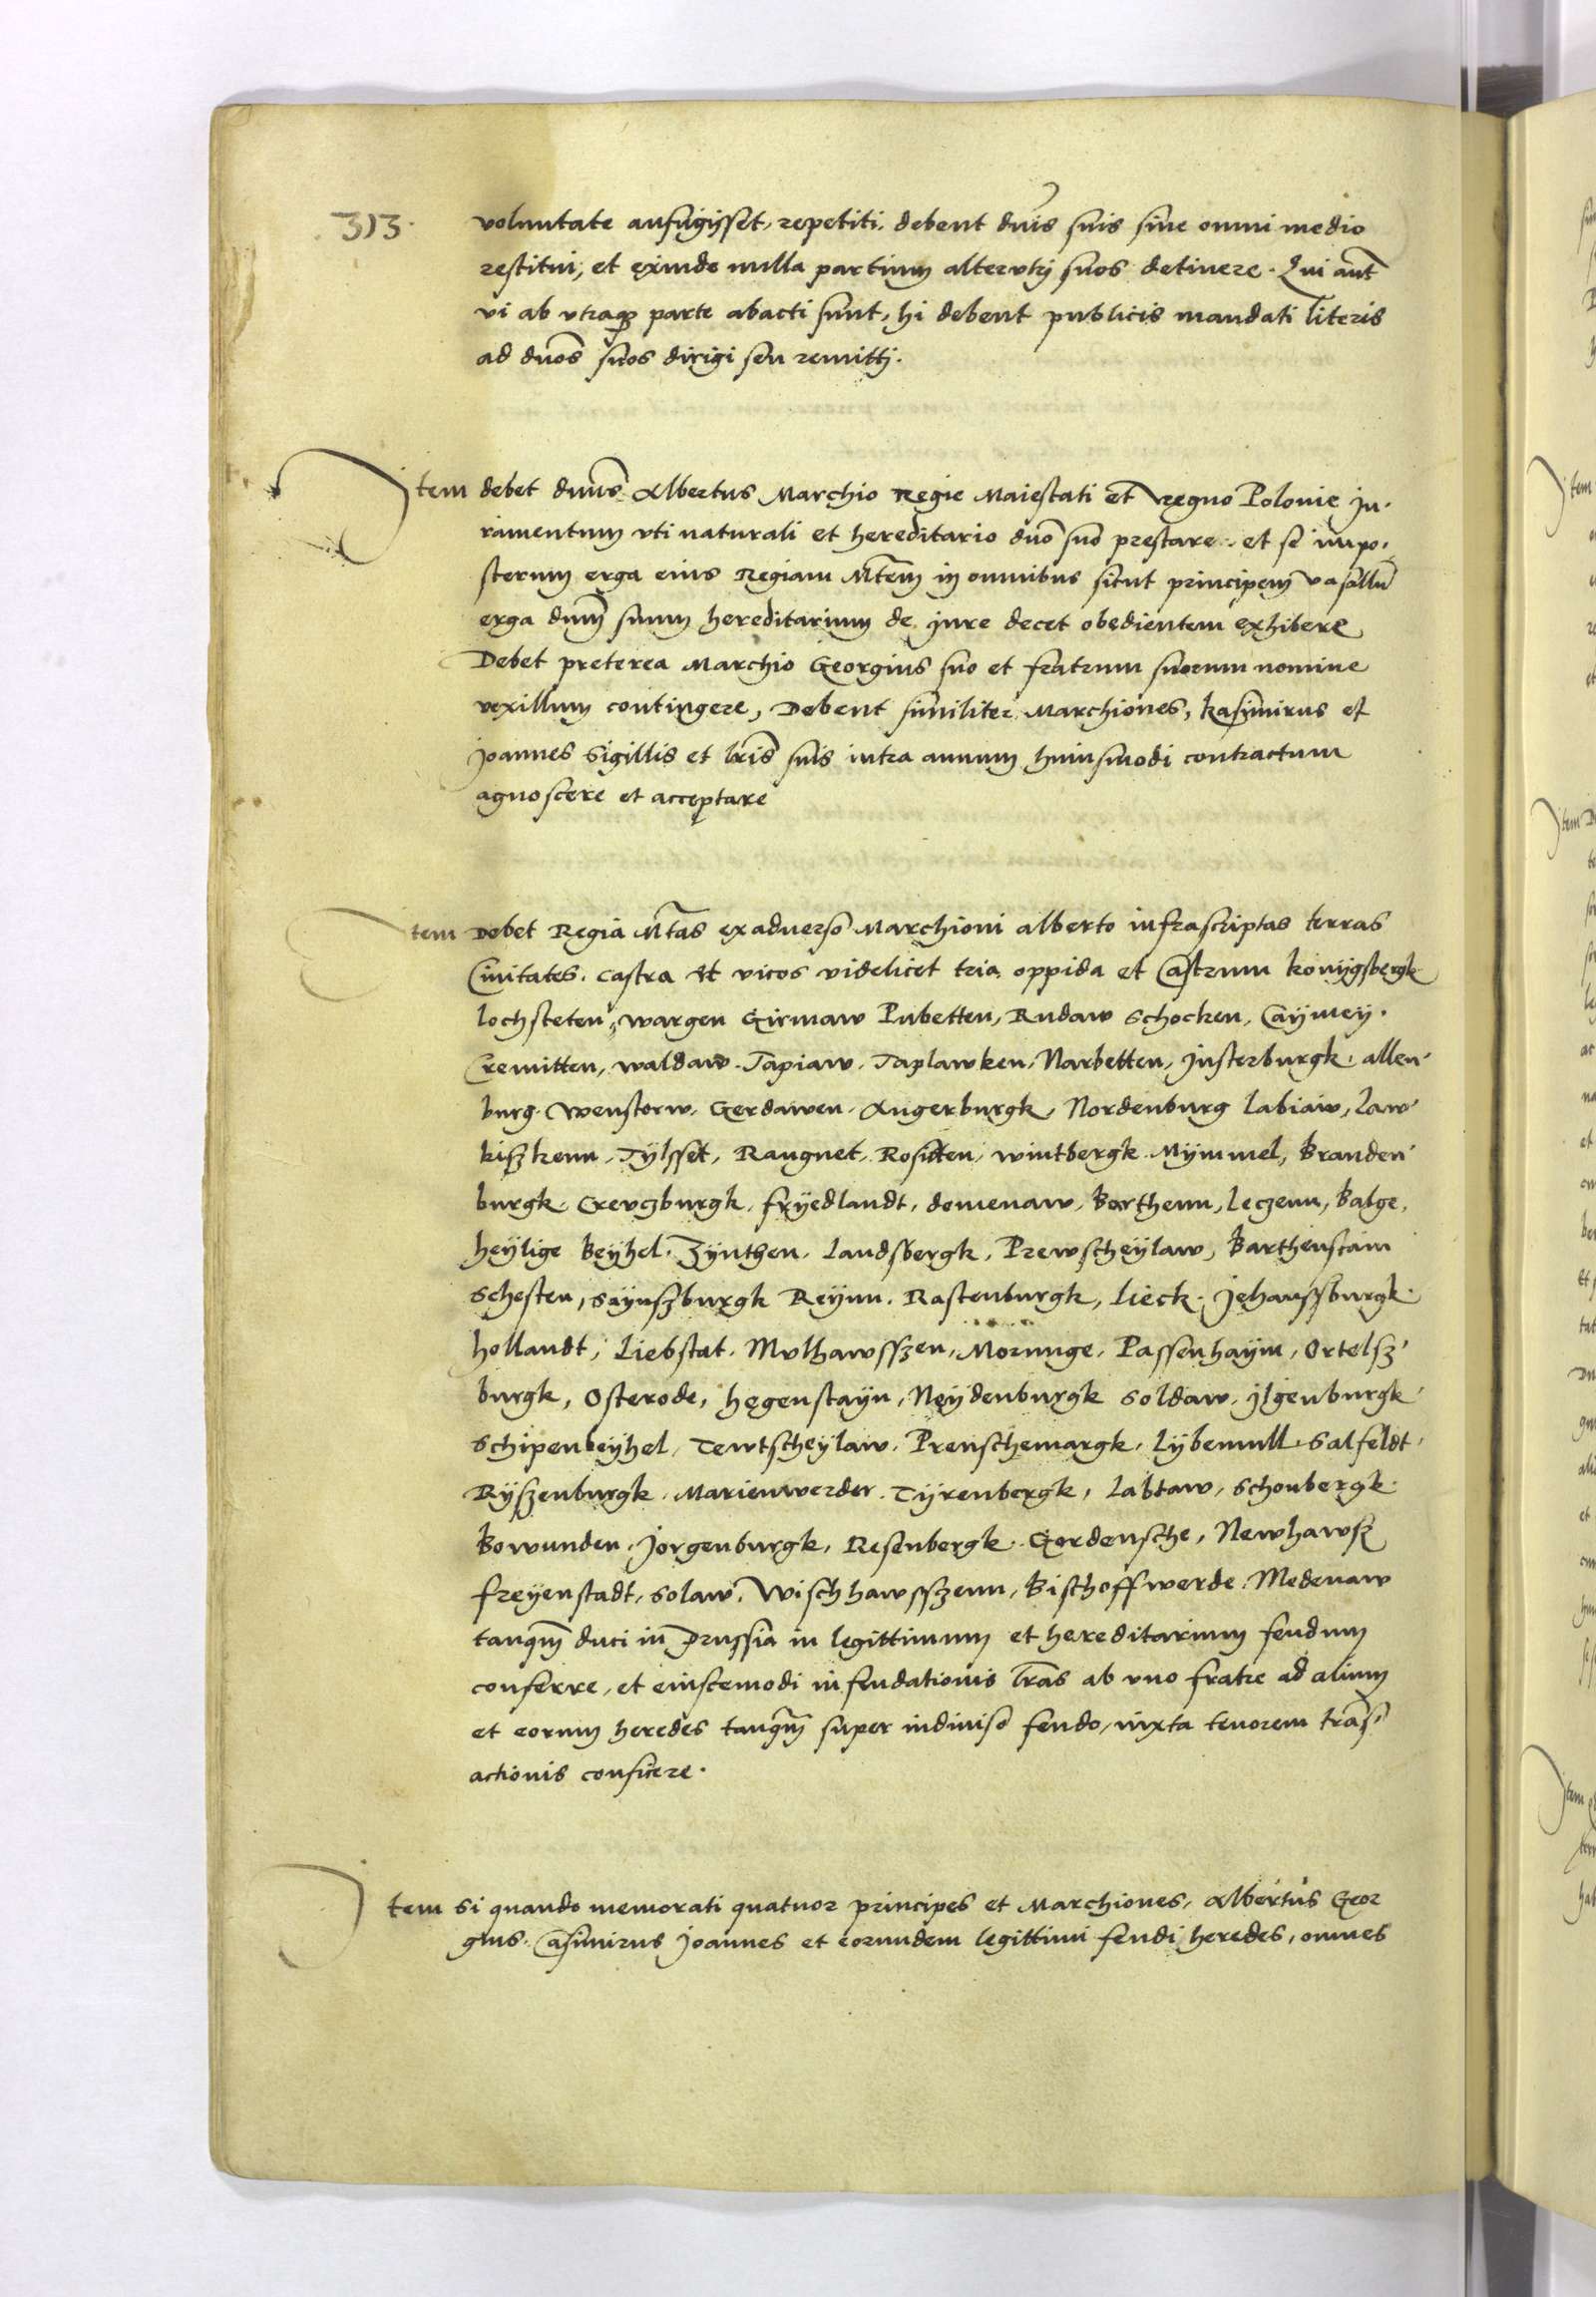 313.
voluntate aufugisset, repetiti, debent dnis suis sine omni medio
restitui, et exinde nulla partium alterutri suos detinere. Qui aut
vi ab utraq parte abacti sunt, hi debent publicis mandati literis
ad dnos suos dirigi seu remitti.
Item debet dnus Albertus Marchio Regie Maiestati et regno Polonie Ju-
ramentum uti naturali et hereditario dno suo prestare, et se impo-
sterum erga eius Regiam Mtem in omnibus sicut principem vasallu
erga dnm suum hereditarium de jure decet obedientem exhibere
Debet preterea Marchio Georgius suo et fratrum suorum nomine
vexillum contingere, Debent similiter Marchiones, Kasimirus et
Joannes Sigillis et lris suis intra annum huiusmodi contractum
agnoscere et acceptare
Item Debet Regia Mtas ex adverso Marchioni alberto infrascriptas terras
Civitates, castra et vicos videlicet tria oppida et Castrum konijgsbergk
lochsteten, wargen Girmaw Pubetten, Rudaw Schocken, Caÿmeÿ.
Cremitten, waldaw. Tapiaw. Taplawken, Narbetten, Justerburgk, allen-
burg. Wenstorw. Gerdawen. Angerburgk, Nordenburg labiaw, law-
kiszkenn, Tÿlsset, Rangnet, Rositten, wintbergk. Mÿmmel, Branden-
burgk, Creuczburgk, frÿedlandt, domenaw, Barthenn, Leczenn, Balge,
heÿlige Beÿhel. Zÿnthen. Landsbergk, Prewscheÿlaw, Barthenstain
Schesten, Saÿnszburgk Reÿnn. Rastenburgk, Lieck. Johanszburgk.
hollandt, Liebstat. Mulhawsszen, Morunge, Passenhaÿm, Ortelsz-
burgk, Osterode, hogenstayn, Neÿdenburgk Soldaw, jlgenburgk
Schipenbeÿhel, Tewtscheÿlaw. Prenschemargk, Lÿbemull. Salfeldt,
Rÿszenburgk. Marienwerder. Tÿrenbergk, Labtaw, Schonbergk.
Bowunden, Jorgenburgk, Resenbergk. Gordensche, Newhawsz
freÿenstadt, Solaw, Wischhawsszenn, Bischoffwerde. Medenaw
tanqm duci in Prussia in legittimum et hereditarium feudum
conferre, et eiuscemodi infeudationis lras ab uno fratre ad alium
et eorum heredes tanqm super indiviso feudo, iuxta tenorem tras-
actionis conficere.
Item Si quando memorati quatuor principes et Marchiones, Albertus Geor
gius. Casimirus Joannes et eorundem legittimi feudi heredes, omnes